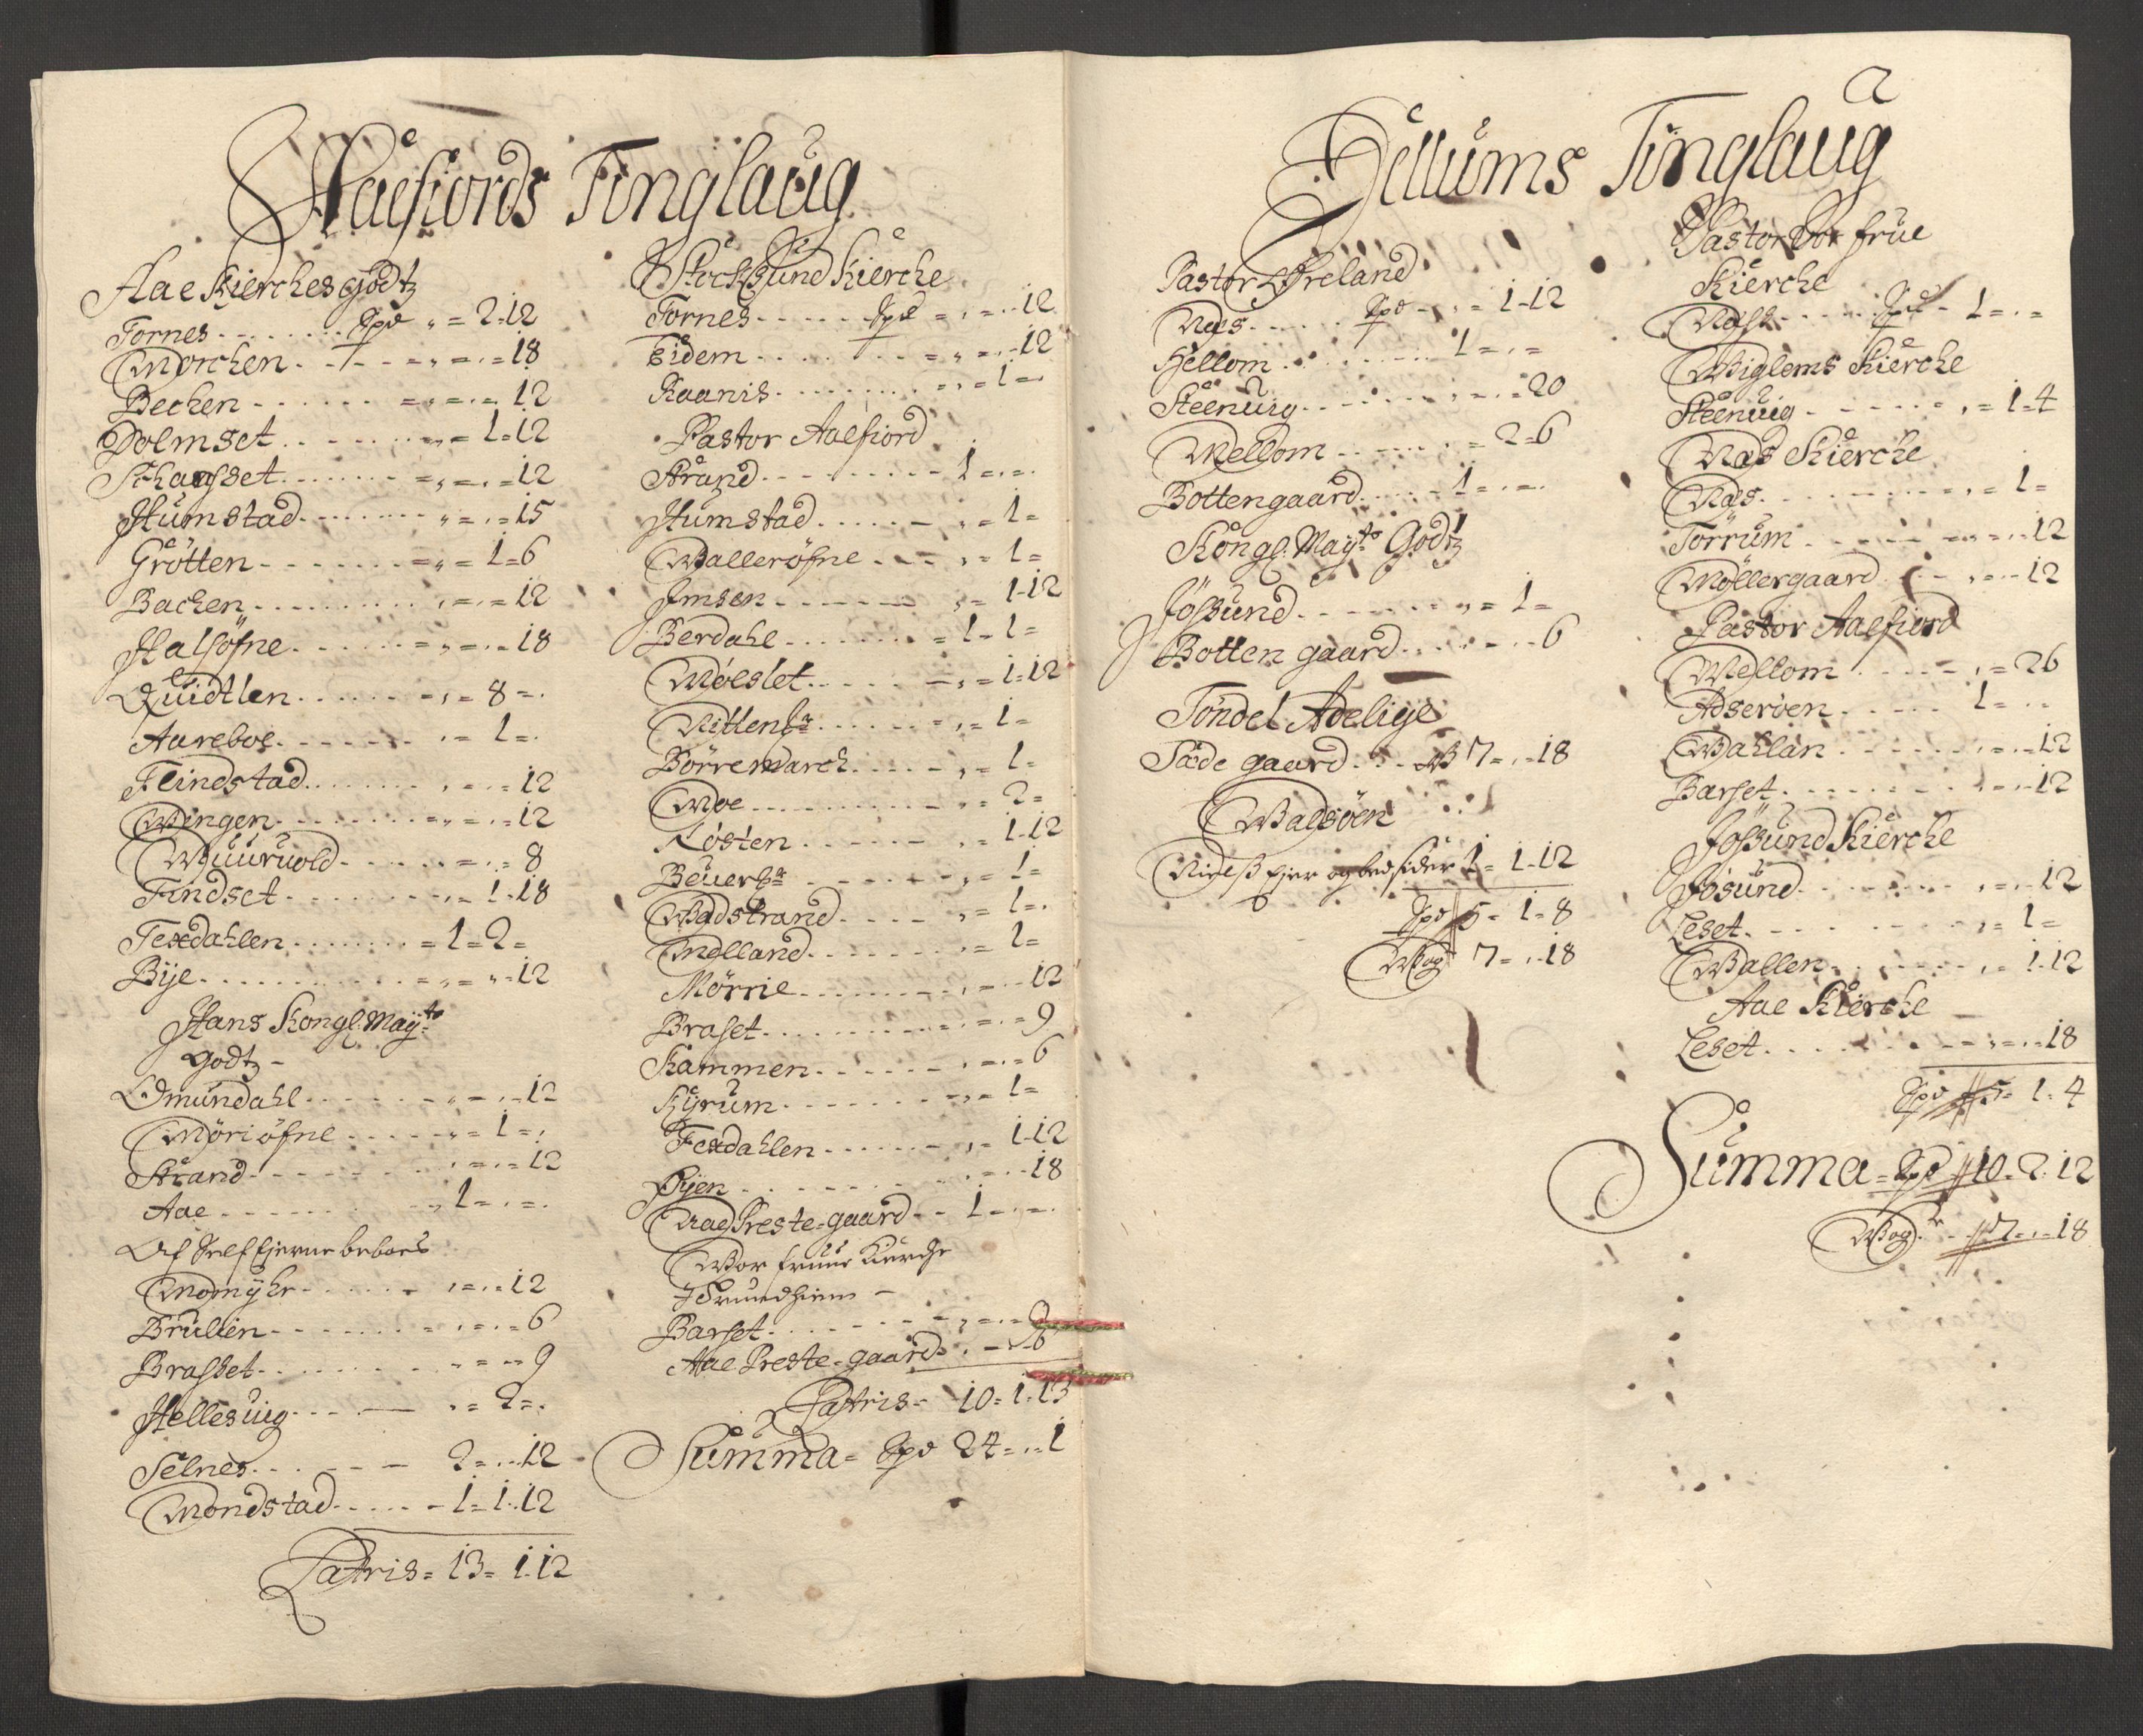 Aaefiords Tinglaug
Aae Kierches Godtz
Fornes - - - - - Spd „ = 2 = 12
Morchen - - - - „ = „ = 18
Bechen - - - - - = „ = „ = 12
Dolmset - - - - „ = 1 = 12
Schaufset - - - - = „ = „ = 12
Humstad - - - - „ = „ = 15
Grötten - - - - = „ = 1 = 6
Bachen - - - - „ = „ = 12
Halföfne - - - - = „ = „ = 18
Quidtlen - - - - „ = 8 = „
Aareboe - - - - „ = 1 = „
Flindstad - - - - „ = „ = 12
Wingen - - - - „ = „ = 12
Wuuruold - - - - = „ = 8
Findset - - - - „ = 1 = 18
Texdahlen - - - - = 1 = 2 =
Bije - - - - = „ = „ = 12
Hans Kongl: Mayts
Godtz -
Omundahl - - - - „ = „ = 12
Möriöfne - - - - „ = 1 = „
Strand - - - - „ = „ = 12
Aae - - - - „ 1 = „ = „
Af Self Ejerne beboes
Momyhr - - - - „ = „ = 12
Brullen - - - - „ = „ = 6
Brasset - - - - „ = „ = 9
Hellesuig - - - „ = 2 = „
Selnes - - - - 2 = „ = 12
Mondstad - - - - 1 = 1 = 12
Latris = 13 = 1 = 12
Stocksund Kierche
Fornes - - - - Spd = „ = „ = 12
Eidem - - - - = „ = „ = 12
Raanis - - - - „ = 1 =
Pastor Aaefiord
Strand - - - - 1 = „ = „
Humstad - - - - „ = 1 =
Walleröfne - - - „ = 1 =
Imsen - - - - „ = 1 = 12
Berdahl - - - - = 1 = 1 =
Moeslet - - - - „ = 1 = 12
- - - - „ = 1 =
Börremarch - - - - „ = 1 =
Moe - - - - „ = 2 =
Kösten - - - - „ = 1 = 12
- - - - „ = 1 =
Wadstrand - - - - „ = 1 = „
Melland - - - - „ = 1 =
Mörrie - - - - „ = „ = 12
Braset - - - - „ = „ = 9
Kammen - - - - „ = „ = 6
Kyrum - - - - „ = 1 =
Texdahlen - - - - „ = 1 = 12
Øyen - - - - „ = „ = 18
Aae Preste-gaard - - 1 = „ = „
Wor fruue Kierche
i Trundhiem -
Barset - - - - „ = „ = 9
Aae Preste-gaard „ = „ = 6
Latris = 10 = 1 = 13
Summa = Spd 24 = „ = 1
Hellums Tinglaug
Pastor Øreland
Næs - - - - Spd - „ = 1 = 12
Hellom - - - - 1 = „ =
Steenuig - - - - „ = „ = 20
Mellom - - - - „ = 2 = 6
Bottengaard - - - - 1 = „ = „
Kongl: Mayts Godtz
Jössund - - - - „ = 1 =
Botten gaard - - - „ = „ = 6
Töndel Adelige
Sæde gaard - - - W 7 = „ = 18
Walsöen
ejer og bedsider 1 = 1 = 12
Spd 5 = 1 = 8
Wog 7 = „ = 18
Pastor Vor frue
Kierche
Næss - - - - Spd - 1 = „ =
Wiglems Kierche
Steenuig - - - - „ = 1 = 4
Næs Kierche
Næs - - - - „ = 1 =
Törrum - - - - „ = „ = 12
Möllergaard - - - „ = „ = 12
Pastor Aaefiord
Mellom - - - - „ = 2 6
Adseröen - - - - 1 = „ = „
Wahlan - - - - „ = „ = 12
Barset - - - - „ = „ = 12
Jössund Kierche
Jösund - - - - „ = „ = 12
Leset - - - - „ = 1 =
Wallen - - - - „ = 1 = 12
Aae Kierche
Leset - - - - „ = „ = 18
Spd 5 = 1 = 4
Summa = Spd 10 = 2 = 12
Wogr - 7 = „ = 18